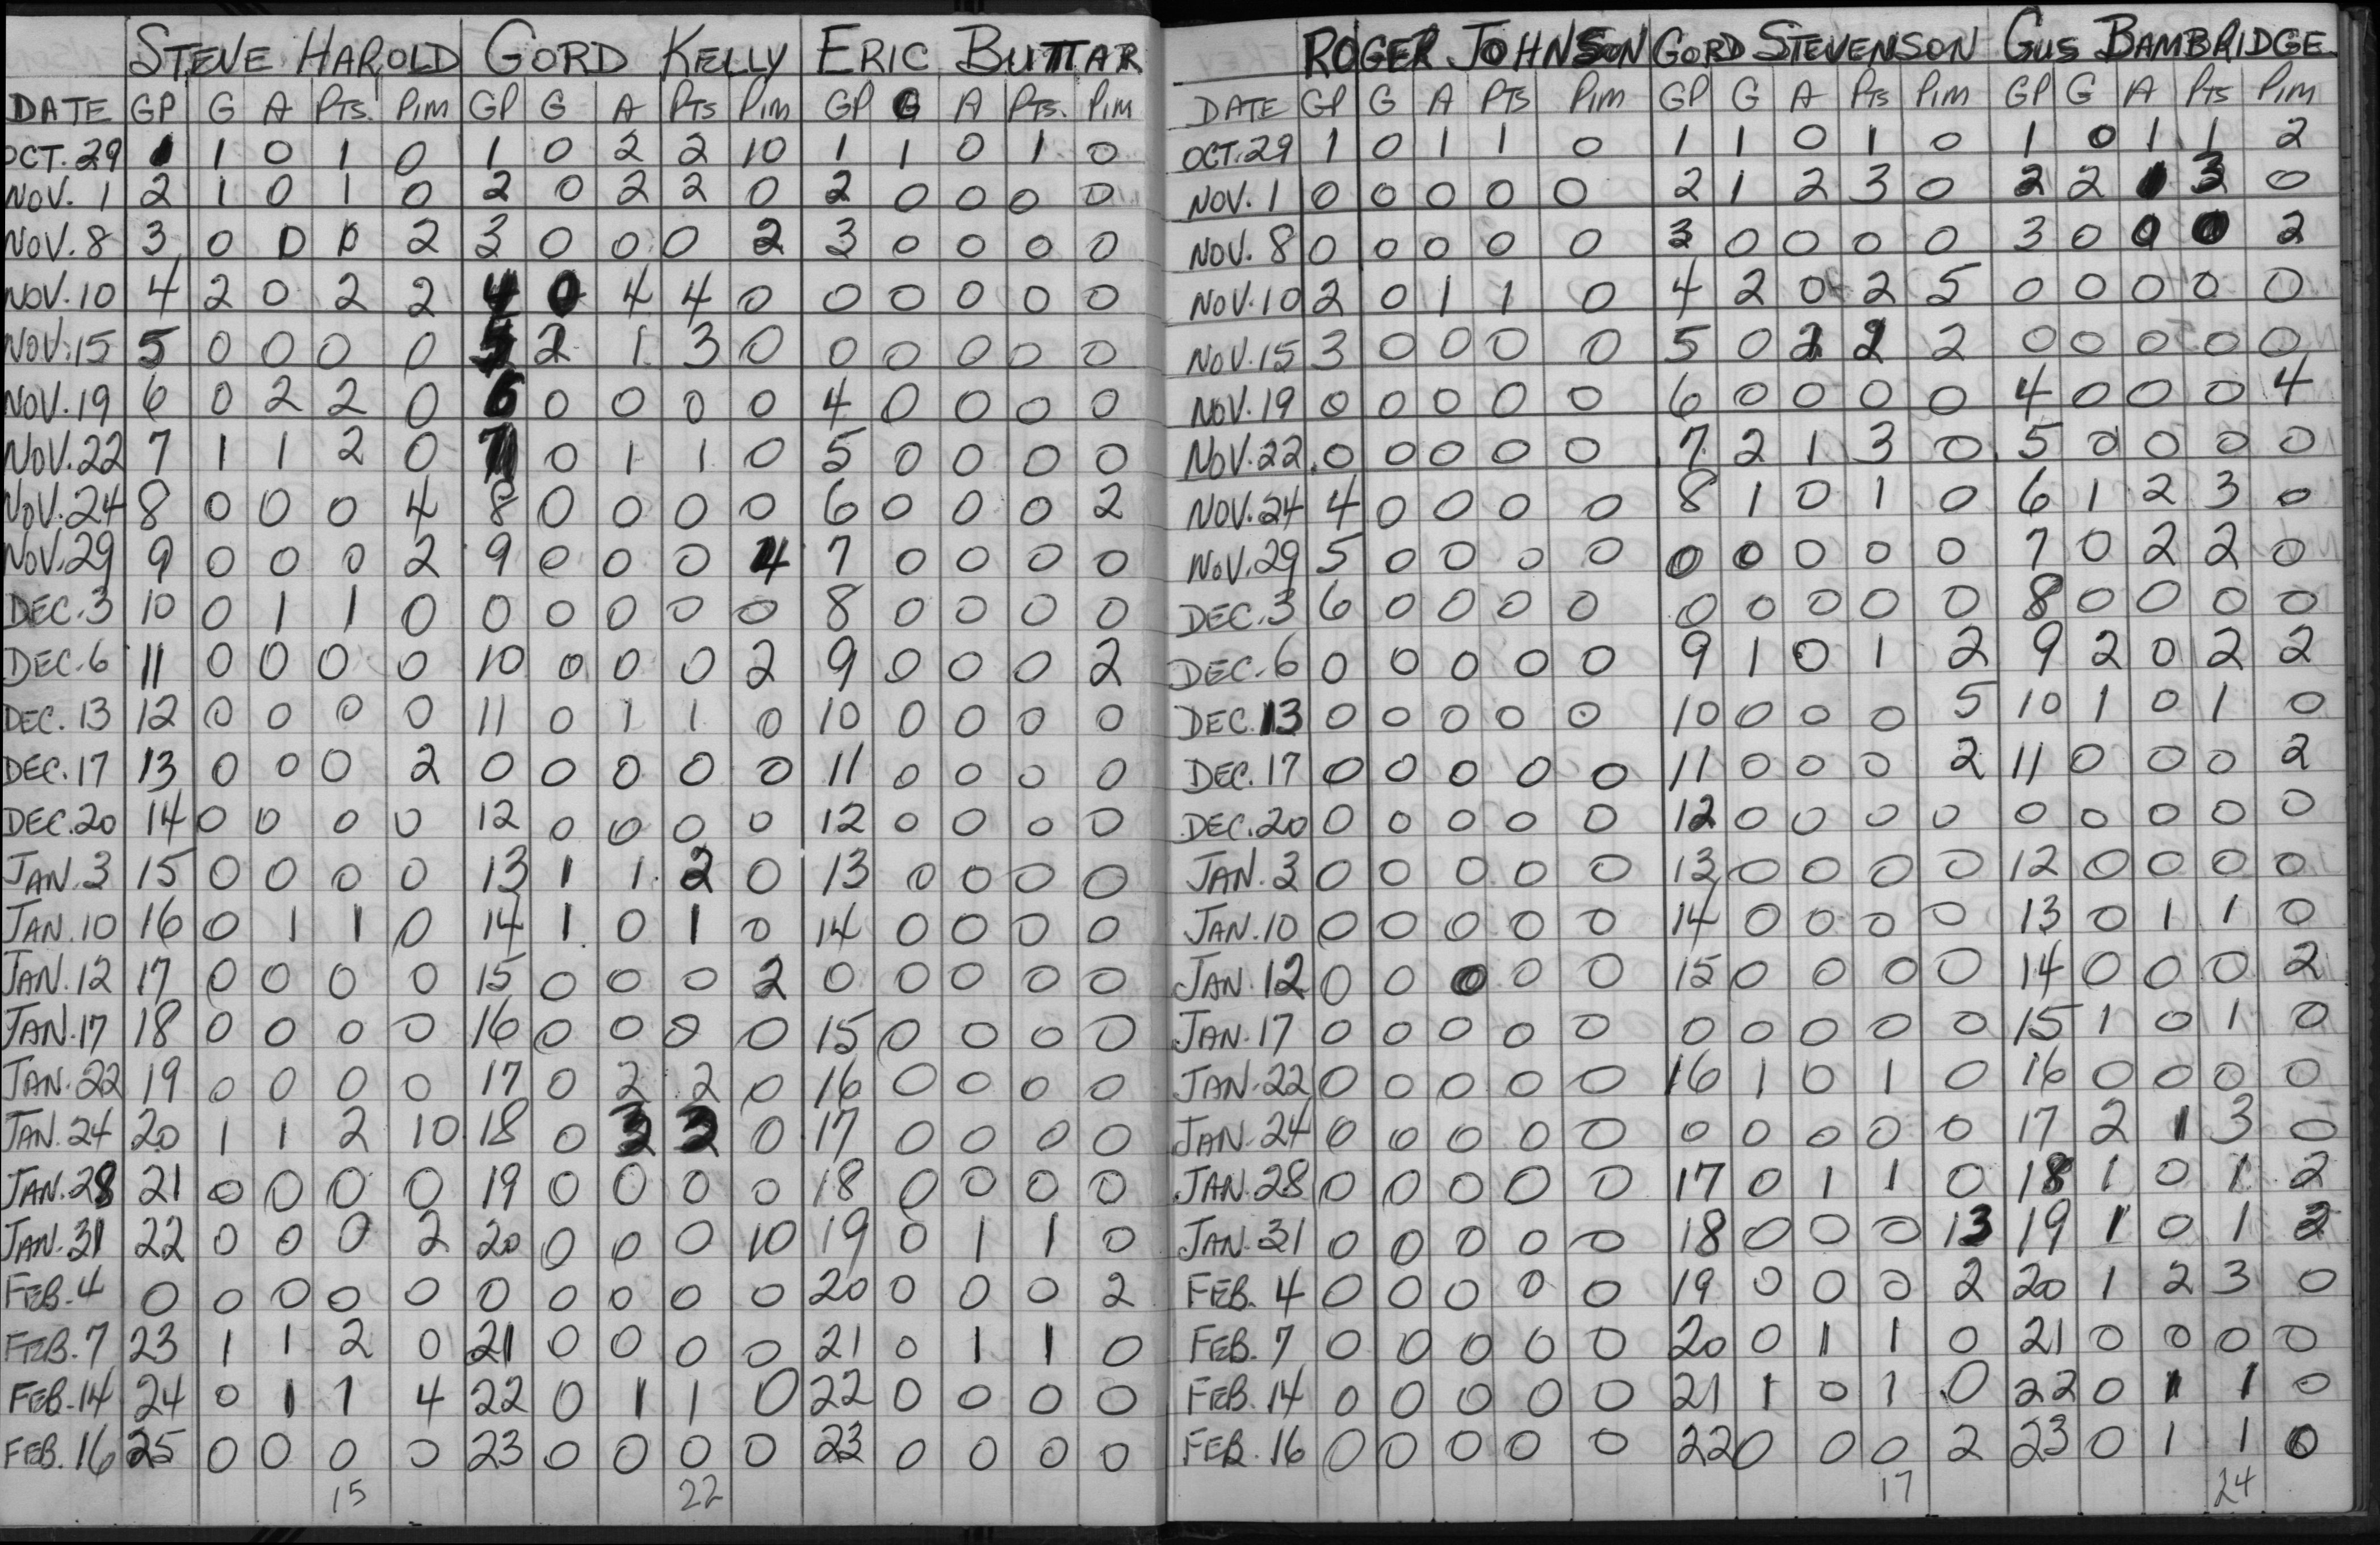 STEVE HAROLD GORD KELLY ERIC BUTTAR
DATE GP G A PTS. PIM GP G A PTS PIM GP G A PTS. PIM
OCT. 29 1 1 0 1 0 1 0 2 2 10 1 1 0 1 0
NOV. 1 2 1 0 1 0 2 0 2 2 0 2 0 0 0 0
NOV. 8 3 0 0 0 2 3 0 0 0 2 3 0 0 0 0
NOV. 10 4 2 0 2 2 4 0 4 4 0 0 0 0 0 0
NOV. 15 5 0 0 0 0 5 2 1 3 0 0 0 0 0 0
NOV. 19 6 0 2 2 0 6 0 0 0 0 4 0 0 0 0
NOV. 22 7 1 1 2 0 7 0 1 1 0 5 0 0 0 0
NOV. 24 8 0 0 0 4 8 0 0 0 0 6 0 0 0 2
NOV. 29 9 0 0 0 2 9 0 0 0 4 7 0 0 0 0
DEC. 3 10 0 1 1 0 0 0 0 0 0 8 0 0 0 0
DEC. 6 11 0 0 0 0 10 0 0 0 2 9 0 0 0 2
DEC. 13 12 0 0 0 0 11 0 1 1 0 10 0 0 0 0
DEC. 17 13 0 0 0 2 0 0 0 0 0 11 0 0 0 0
DEC. 20 14 0 0 0 0 12 0 0 0 0 12 0 0 0 0
JAN. 3 15 0 0 0 0 13 1 1 2 0 13 0 0 0 0
JAN. 10 16 0 1 1 0 14 1 0 1 0 14 0 0 0 0
JAN. 12 17 0 0 0 0 15 0 0 0 2 0 0 0 0 0
JAN. 17 18 0 0 0 0 16 0 0 0 0 15 0 0 0 0
JAN. 22 19 0 0 0 0 17 0 2 2 0 16 0 0 0 0
JAN. 24 20 1 1 2 10 18 0 3 3 0 17 0 0 0 0
JAN. 28 21 0 0 0 0 19 0 0 0 0 18 0 0 0 0
JAN. 31 22 0 0 0 2 20 0 0 0 10 19 0 1 1 0
FEB. 4 0 0 0 0 0 0 0 0 0 0 20 0 0 0 2
FEB. 7 23 1 1 2 0 21 0 0 0 0 21 0 1 1 0
FEB. 14 24 0 1 1 4 22 0 1 1 0 22 0 0 0 0
FEB. 16 25 0 0 0 0 23 0 0 0 0 23 0 0 0 0
15 22
ROGER JOHNSON GORD STEVENSON GUS BAMBRIDGE
DATE GP G A PTS PIM GP G A PTS PIM GP G A PTS PIM
OCT. 29 1 0 1 1 0 1 1 0 1 0 1 0 1 1 2
NOV. 1 0 0 0 0 0 2 1 2 3 0 2 2 1 3 0
NOV. 8 0 0 0 0 0 3 0 0 0 0 3 0 0 0 2
NOV. 10 2 0 1 1 0 4 2 0 2 5 0 0 0 0 0
NOV. 15 3 0 0 0 0 5 0 2 2 2 0 0 0 0 0
NOV. 19 0 0 0 0 0 6 0 0 0 0 4 0 0 0 4
NOV. 22 0 0 0 0 0 7 2 1 3 0 5 0 0 0 0
NOV. 24 4 0 0 0 0 8 1 0 1 0 6 1 2 3 0
NOV. 29 5 0 0 0 0 0 0 0 0 0 7 0 2 2 0
DEC. 3 6 0 0 0 0 0 0 0 0 0 8 0 0 0 0
DEC. 6 0 0 0 0 0 9 1 0 1 2 9 2 0 2 2
DEC. 13 0 0 0 0 0 10 0 0 0 5 10 1 0 1 0
DEC. 17 0 0 0 0 0 11 0 0 0 2 11 0 0 0 2
DEC. 20 0 0 0 0 0 12 0 0 0 0 0 0 0 0 0
JAN. 3 0 0 0 0 0 13 0 0 0 0 12 0 0 0 0
JAN. 10 0 0 0 0 0 14 0 0 0 0 13 0 1 1 0
JAN. 12 0 0 0 0 0 15 0 0 0 0 14 0 0 0 2
JAN. 17 0 0 0 0 0 0 0 0 0 0 15 1 0 1 0
JAN. 22 0 0 0 0 0 16 1 0 1 0 16 0 0 0 0
JAN. 24 0 0 0 0 0 0 0 0 0 0 17 2 1 3 0
JAN. 28 0 0 0 0 0 17 0 1 1 0 18 1 0 1 2
JAN. 31 0 0 0 0 0 18 0 0 0 13 19 1 0 1 2
FEB. 4 0 0 0 0 0 19 0 0 0 2 20 1 2 3 0
FEB. 7 0 0 0 0 0 20 0 1 1 0 21 0 0 0 0
FEB. 14 0 0 0 0 0 21 1 0 1 0 22 0 1 1 0
FEB. 16 0 0 0 0 0 22 0 0 0 2 23 0 1 1 0
17 24